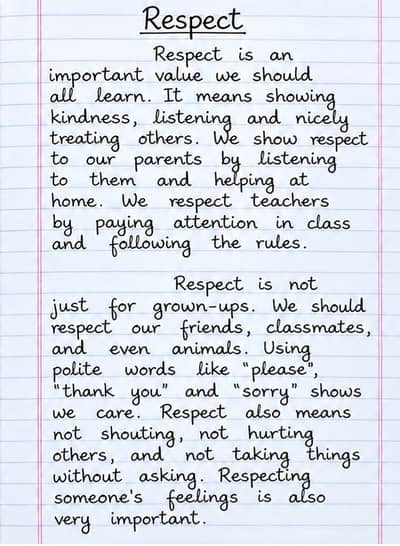 Respect
Respect is an
important value we should
all learn. It means showing
kindness, listening and nicely
treating others. We show respect
to our parents by listening
to them and helping at
home. We respect teachers
by paying attention in class
and following the rules.
Respect is not
just for grown-ups. We should
respect our friends, classmates,
and even animals. Using
polite words like "please",
"thank you" and "sorry" shows
we care. Respect also means
not shouting, not hurting
others, and not taking things
without asking. Respecting
someone's feelings is also
very important.